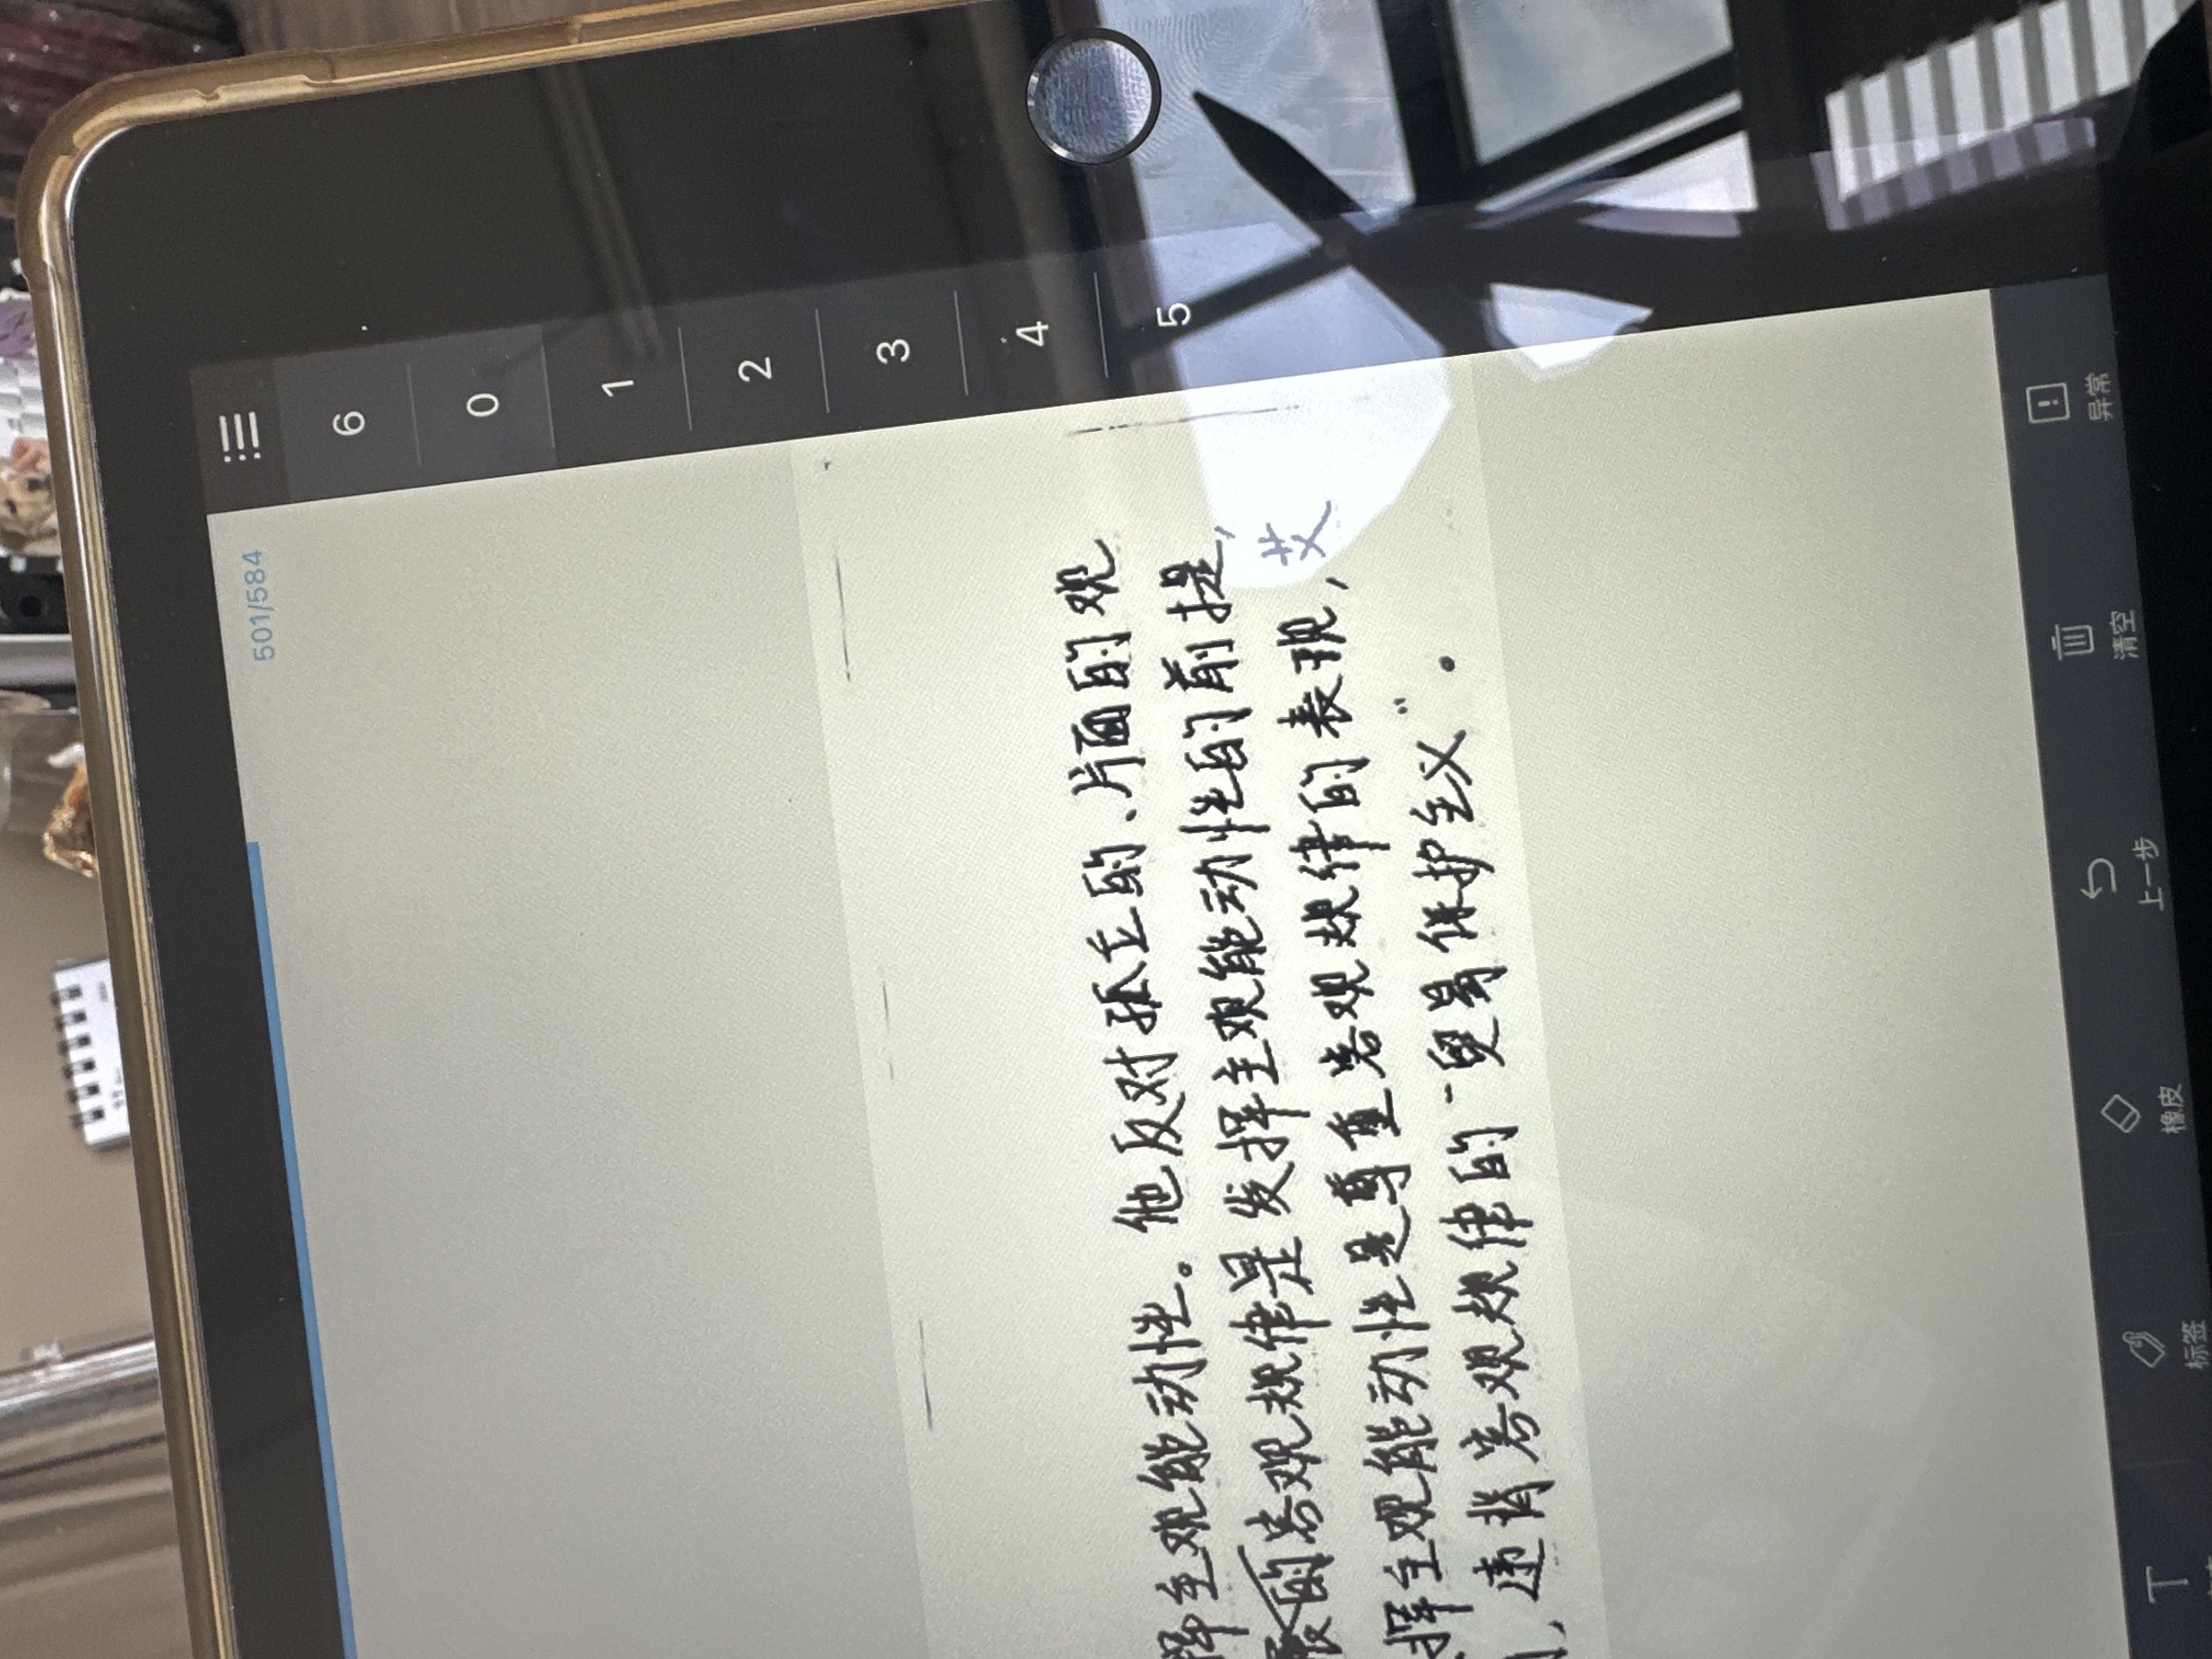 501/584
6
0
1
2
3
4
5
挥主观能动性。他反对孤立的、片面的观
的客观规律是发挥主观能动性的前提,
挥主观能动性是尊重客观规律的表现,
违背客观规律的“贸易保护主义”.
T
标签
橡皮
上一步
清空
异常